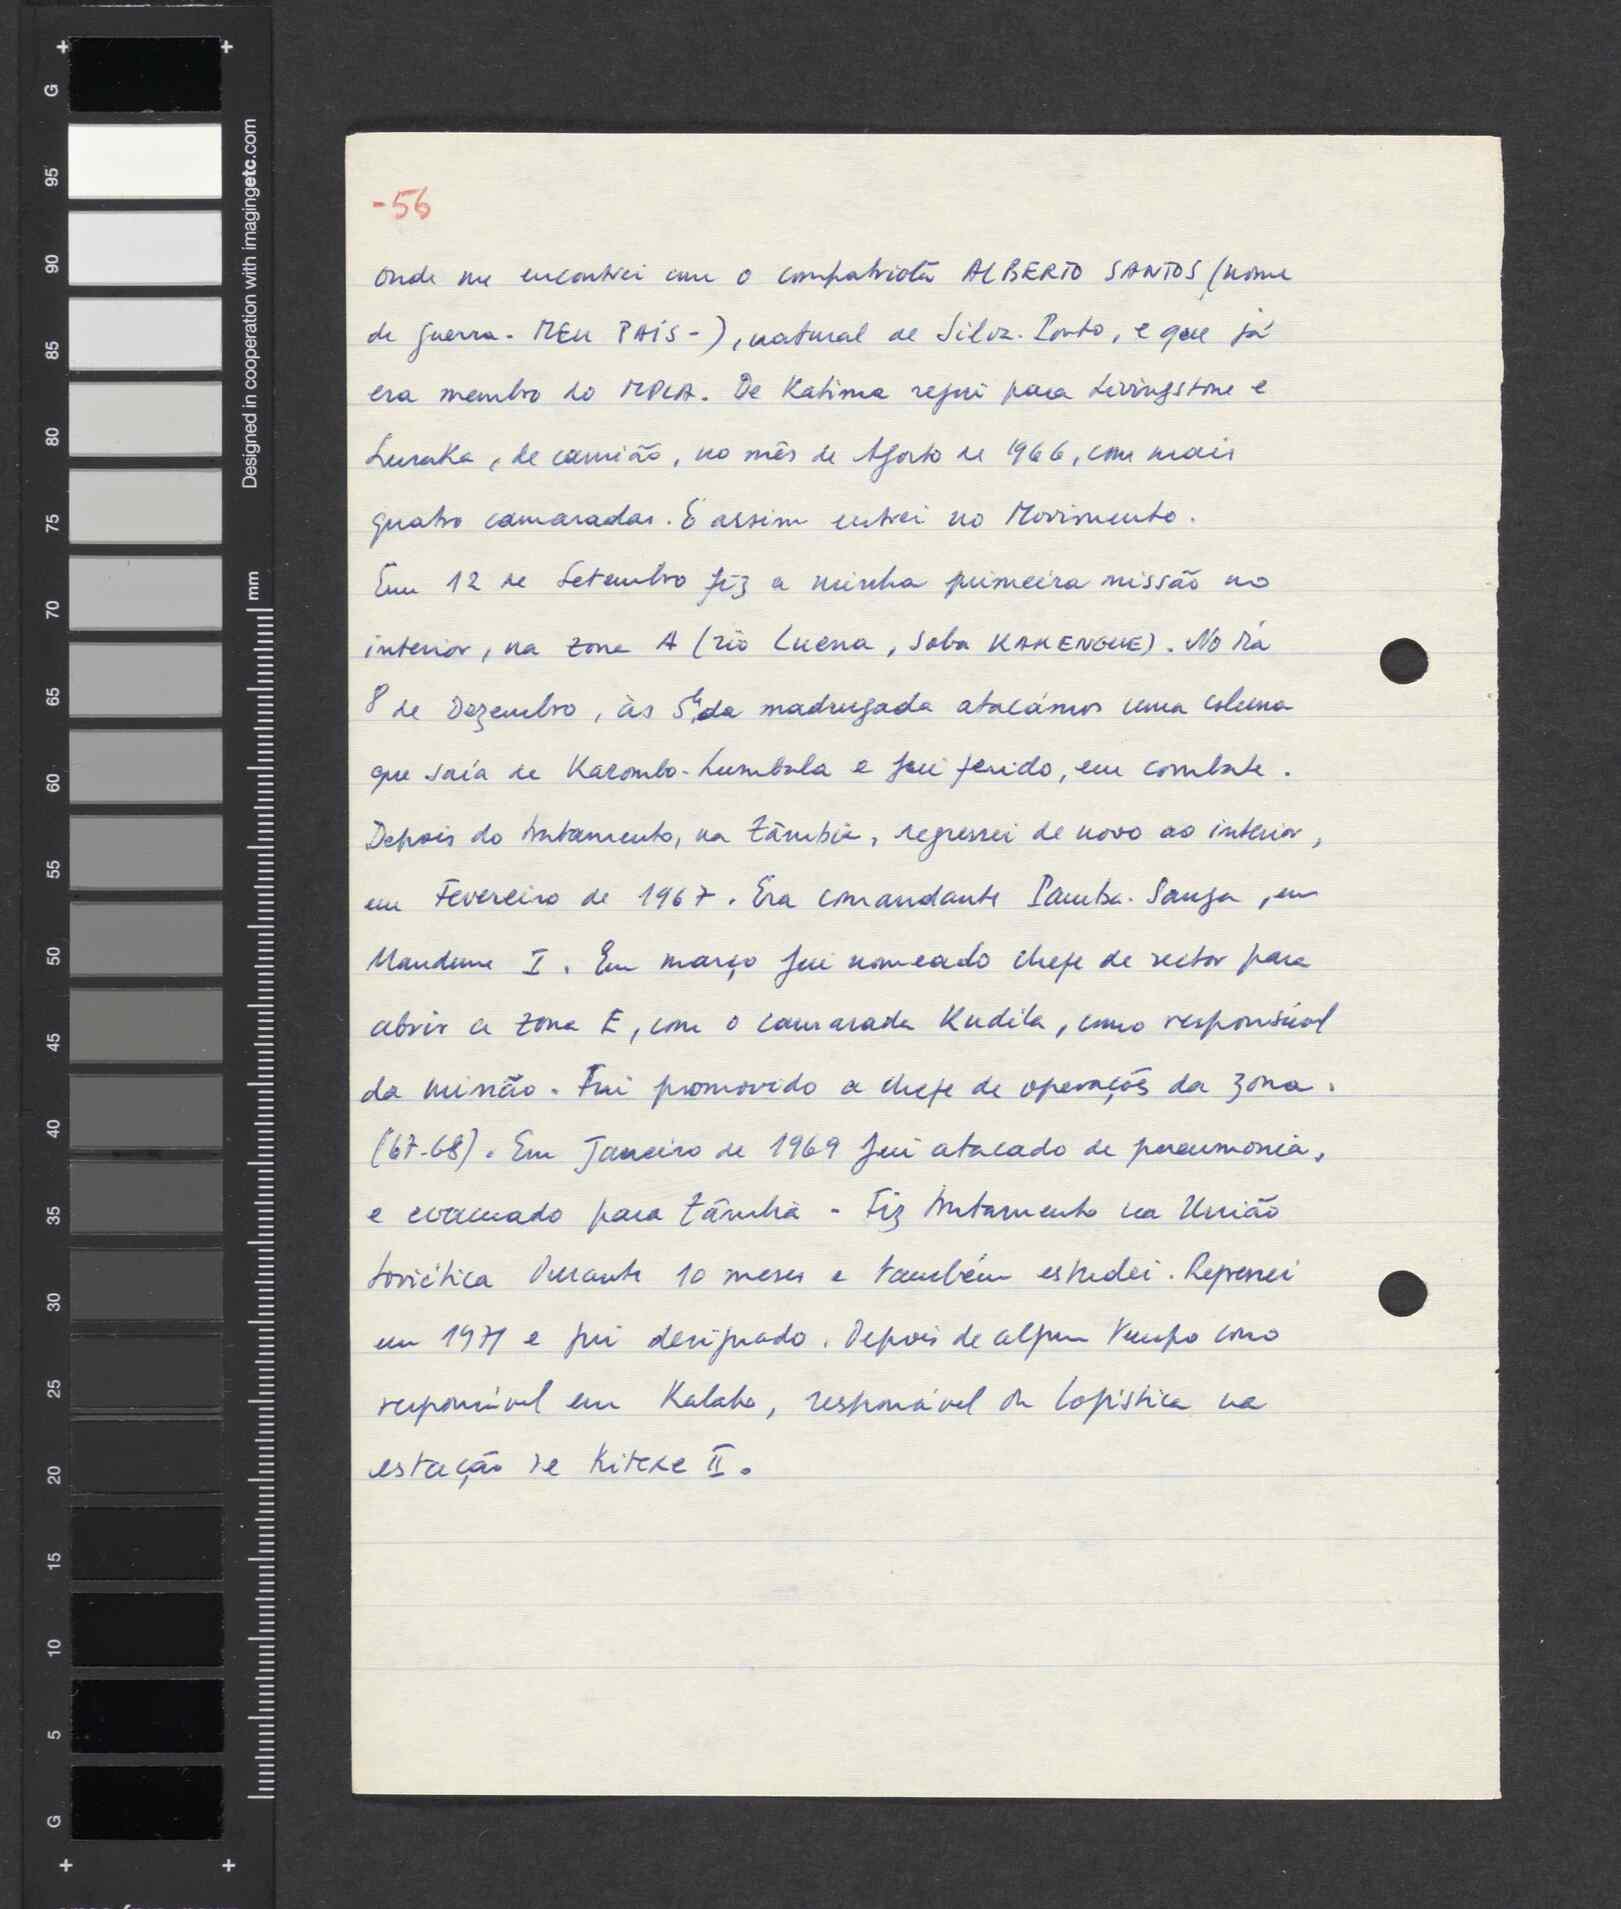 -56
onde me encontrei com o compatriota ALBERTO SANTOS (nome
de guerra - MEU PAÍS -), natural de Silva-Porto, e que já
era membro do MPLA. De Katima segui para Livingstone e
Lusaka, de camião, no mês de Agosto de 1966, com mais
quatro camaradas. E assim entrei no Movimento.
Em 12 de Setembro fiz a minha primeira missão no
interior, na zona A (rio Luena, Soba KAHENGUE). No dia
8 de Dezembro, às 5h da madrugada atacámos uma coluna
que saía de Karombo-Lumbala e fui ferido, em combate.
Depois do tratamento, na Zâmbia, regressei de novo ao interior,
em Fevereiro de 1967. Era comandante Pamba-Sanga, em
Mandume I. Em março fui nomeado chefe de sector para
abrir a zona E, com o camarada Kudila, como responsável
da missão. Fui promovido a chefe de operações da zona.
(67-68). Em Janeiro de 1969 fui atacado de pneumonia,
e evacuado para Zâmbia - Fiz tratamento na União
Soviética durante 10 meses e também estudei. Regressei
em 1971 e fui designado. Depois de algum tempo como
responsável em Kalabo, responsável da logística na
estação de Kitexe II.
G
95
90
85
80
75
70
65
60
55
50
45
40
35
30
25
20
15
10
5
G
mm
Designed in cooperation with imagingetc.com